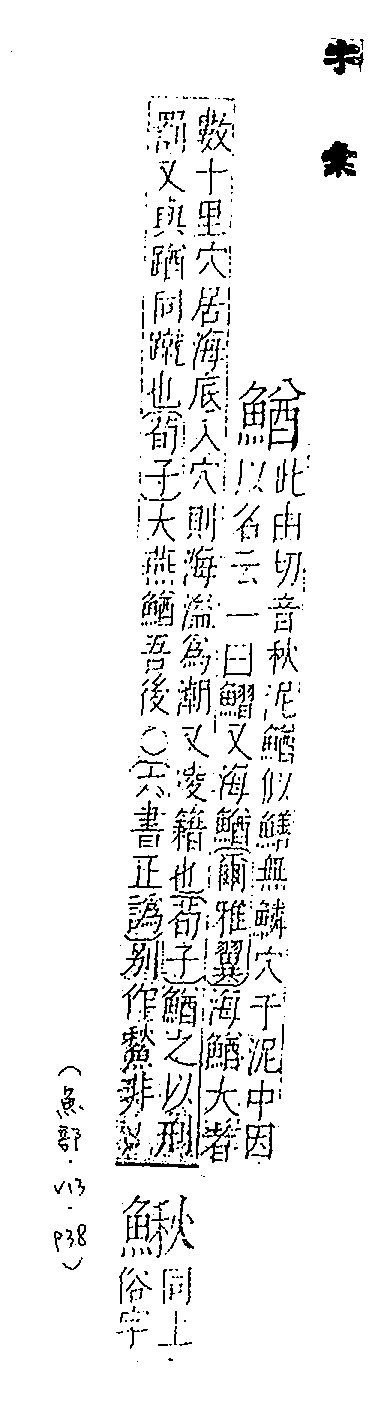 字彙
鰌
此由切音秋泥鰌似鱔無鱗穴于泥中因
以名云一曰鰼又海鰌爾雅翼海鰌大者
數十里穴居海底入穴則海溢為潮又凌籍也荀子鰌之以刑
罰又與蹵同蹴也荀子大燕鰌吾後〇六書正譌別作鰍非
鰍
同上
俗字
(魚部.V13.P38)